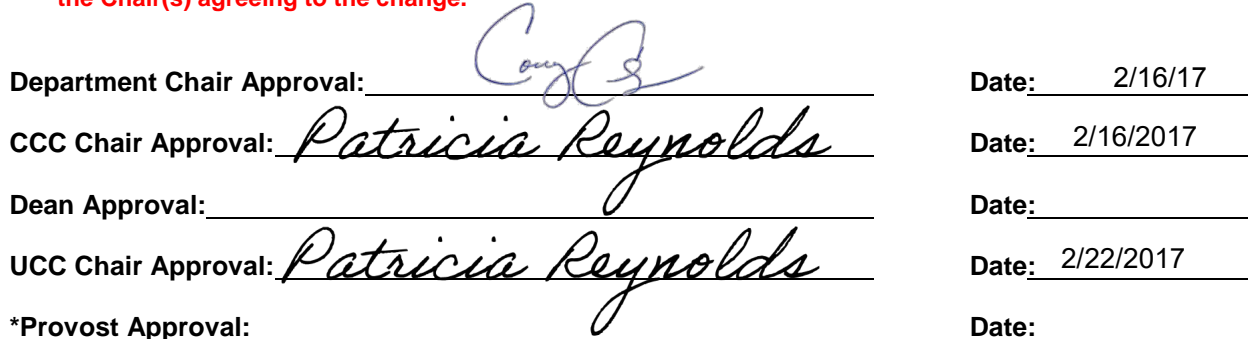 the Chair(s) agreeing to the change.
Department Chair Approval: Date: 2/16/17
CCC Chair Approval: Patricia Reynolds Date: 2/16/2017
Dean Approval: Date:
UCC Chair Approval: Patricia Reynolds Date: 2/22/2017
*Provost Approval: Date: